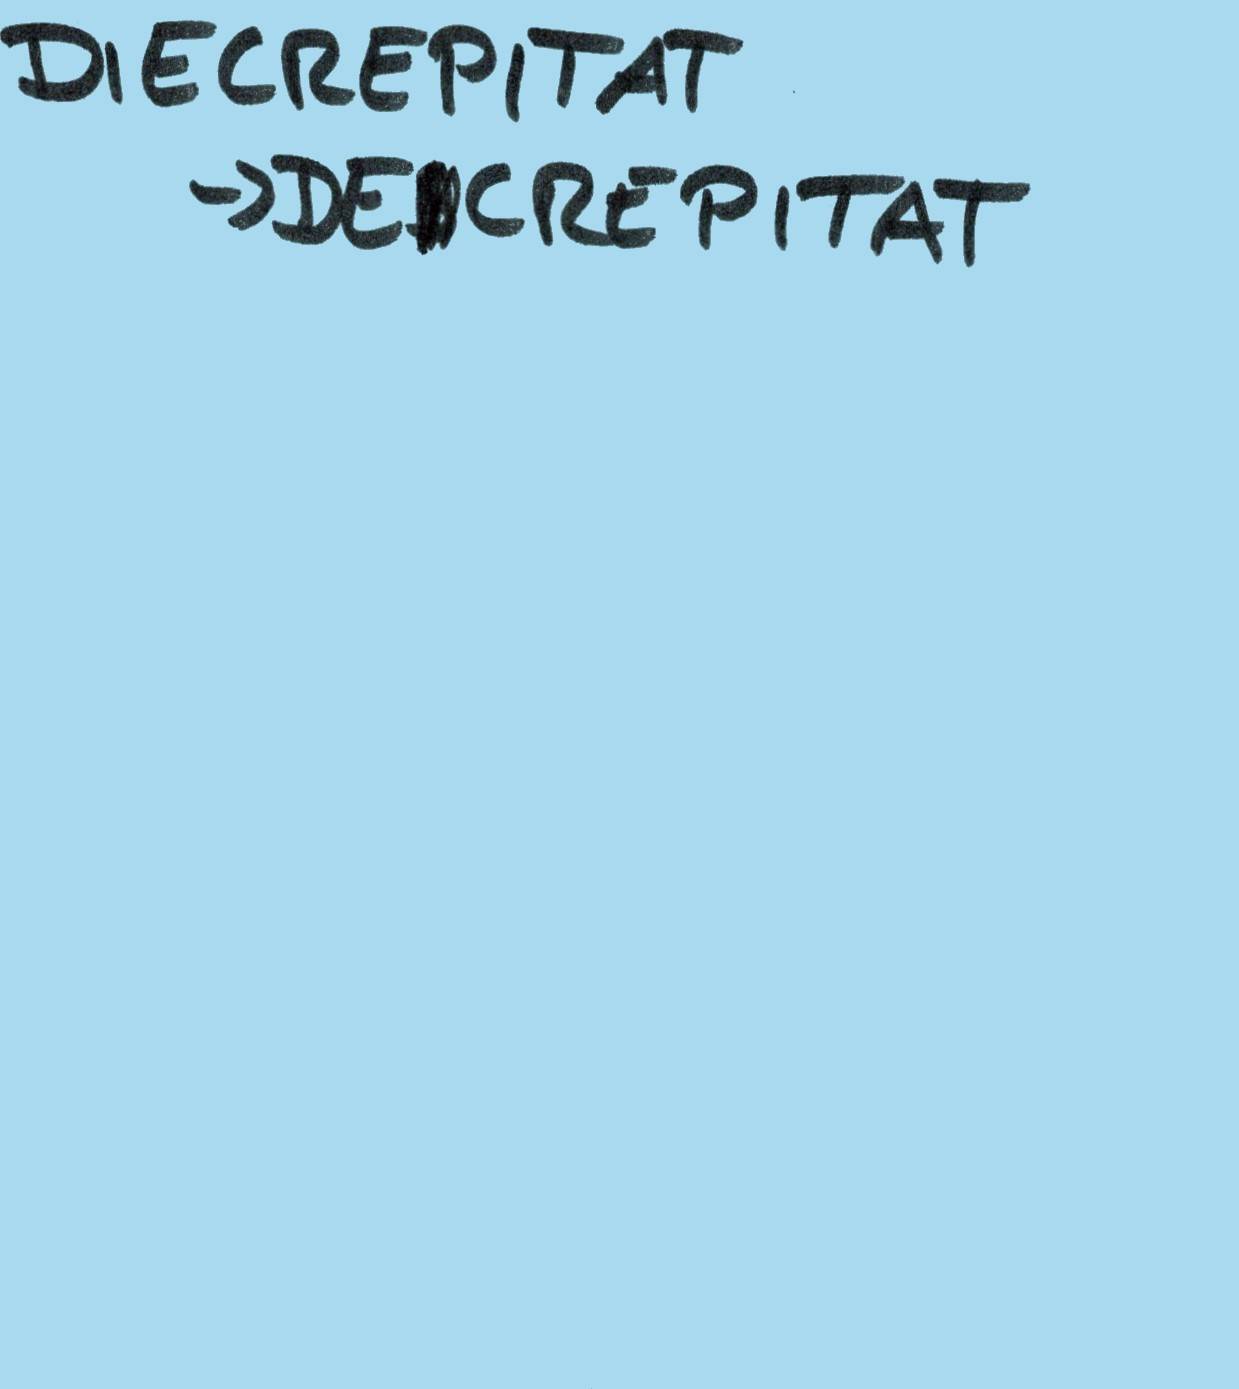 DIECREPITAT
->DECREPITAT